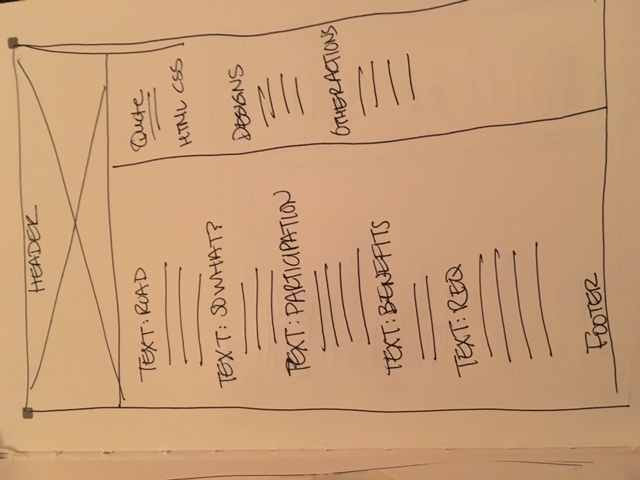 HEADER
TEXT: ROAD
TEXT: SO WHAT?
TEXT: PARTICIPATION
TEXT: BENEFITS
TEXT: REQ
FOOTER
Quote
HTML CSS
DESIGNS
OTHER ACTIONS